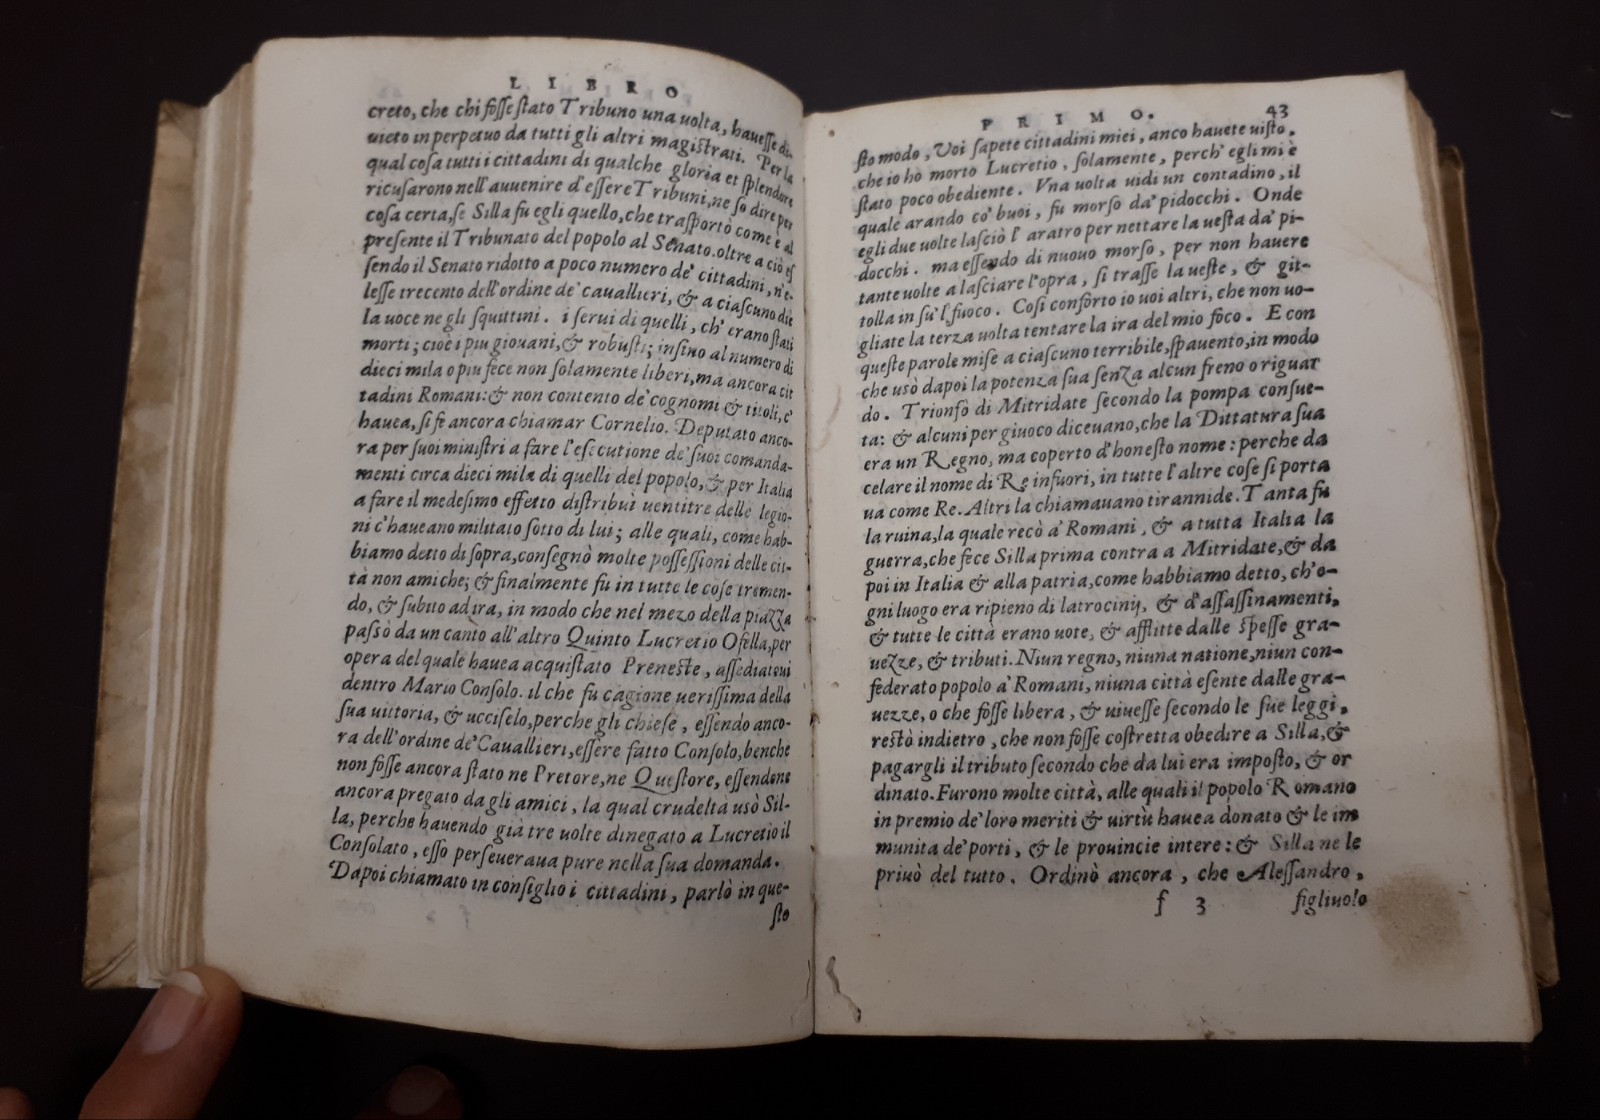 LIBRO
creto, che chi fosse stato Tribuno una uolta, hauesse di-
uieto in perpetuo da tutti gli altri magistrati. Per la
qual cosa tutti i cittadini di qualche gloria et splendore
ricusarono nell'auuenire d'essere Tribuni, ne so dire per
cosa certa, se Silla fu egli quello, che trasportò come è al
presente il Tribunato del popolo al Senato. oltre a ciò es
sendo il Senato ridotto a poco numero de' cittadini, n'e-
lesse trecento dell'ordine de' cauallieri, & a ciascuno die
la uoce ne gli squittini. i serui di quelli, ch'erano stati
morti; cioè i piu giouani, & robusti; insino al numero di
dieci mila o piu fece non solamente liberi, ma ancora cit
tadini Romani: & non contento de' cognomi & titoli, c'
hauea, si fe ancora chiamar Cornelio. Deputato anco-
ra per suoi ministri a fare l'esecutione de' suoi comanda-
menti circa dieci mila di quelli del popolo, & per Italia
a fare il medesimo effetto distribuì uentitre delle legio-
ni c'haueano militato sotto di lui; alle quali, come hab-
biamo detto di sopra, consegnò molte possessioni delle cit-
tà non amiche; & finalmente fu in tutte le cose tremen-
do, & subito ad ira, in modo che nel mezo della piazza
passò da un canto all'altro Quinto Lucretio Ofella, per
opera del quale hauea acquistato Preneste, assediatoui
dentro Mario Consolo. il che fu cagione uerissima della
sua uittoria, & ucciselo, perche gli chiese, essendo anco-
ra dell'ordine de' Cauallieri, essere fatto Consolo, benche
non fosse ancora stato ne Pretore, ne Questore, essendone
ancora pregato da gli amici, la qual crudeltà usò Sil-
la, perche hauendo già tre uolte dinegato a Lucretio il
Consolato, esso perseueraua pure nella sua domanda.
Dapoi chiamato in consiglio i cittadini, parlò in que-
sto
PRIMO. 43
sto modo, Voi sapete cittadini miei, anco hauete uisto,
che io hò morto Lucretio, solamente, perch'egli mi è
stato poco obediente. Vna uolta uidi un contadino, il
quale arando co' buoi, fu morso da' pidocchi. Onde
egli due uolte lasciò l'aratro per nettare la uesta da' pi-
docchi. ma essendo di nuouo morso, per non hauere
tante uolte a lasciare l'opra, si trasse la ueste, & git-
tolla in su'l fuoco. Cosi conforto io uoi altri, che non uo-
gliate la terza uolta tentare la ira del mio foco. E con
queste parole mise a ciascuno terribile, spauento, in modo
che usò dapoi la potenza sua senza alcun freno o riguar
do. Trionfò di Mitridate secondo la pompa consue-
ta: & alcuni per giuoco diceuano, che la Dittatura sua
era un Regno, ma coperto d'honesto nome: perche da
celare il nome di Re infuori, in tutte l'altre cose si porta
ua come Re. Altri la chiamauano tirannide. Tanta fu
la ruina, la quale recò a' Romani, & a tutta Italia la
guerra, che fece Silla prima contra a Mitridate, & da
poi in Italia & alla patria, come habbiamo detto, ch'o-
gni luogo era ripieno di latrocinij, & d'assassinamenti,
& tutte le città erano uote, & afflitte dalle spesse gra-
uezze, & tributi. Niun regno, niuna natione, niun con-
federato popolo a' Romani, niuna città esente dalle gra-
uezze, o che fosse libera, & uiuesse secondo le sue leggi,
restò indietro, che non fosse costretta obedire a Silla, &
pagargli il tributo secondo che da lui era imposto, & or
dinato. Furono molte città, alle quali il popolo Romano
in premio de' loro meriti & uirtù hauea donato & le im
munita de' porti, & le prouincie intere: & Silla ne le
priuò del tutto. Ordinò ancora, che Alessandro,
f 3 figliuolo